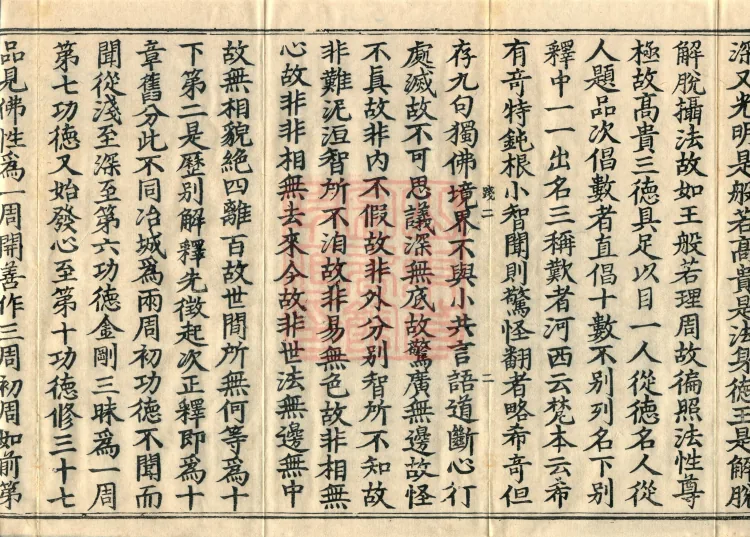 深又光明是般若高貴是法身德王是解脫
解脫攝法故如王般若理周故徧照法性尊
極故高貴三德具足以目一人從德名人從
人題品次倡數者直倡十數不別列名下別
釋中一一出名三稱歎者河西云梵本云希
有奇特鈍根小智聞則驚怪翻者略希奇但
踐二
二
存九句獨佛境界不與小共言語道斷心行
處滅故不可思議深無底故驚廣無邊故怪
不真故非內不假故非外分別智所不知故
非難泥洹智所不泪故非易無色故非相無
心故非非相無去來今故非世法無邊無中
故無相貌絕四離百故世間所無何等為十
下第二是歷別解釋先徵起次正釋即為十
章舊分此不同冶城為兩周初功德不聞而
聞從淺至深至第六功德金剛三昧為一周
第七功德又始發心至第十功德修三十七
品見佛性為一周開善作三周初周如前第